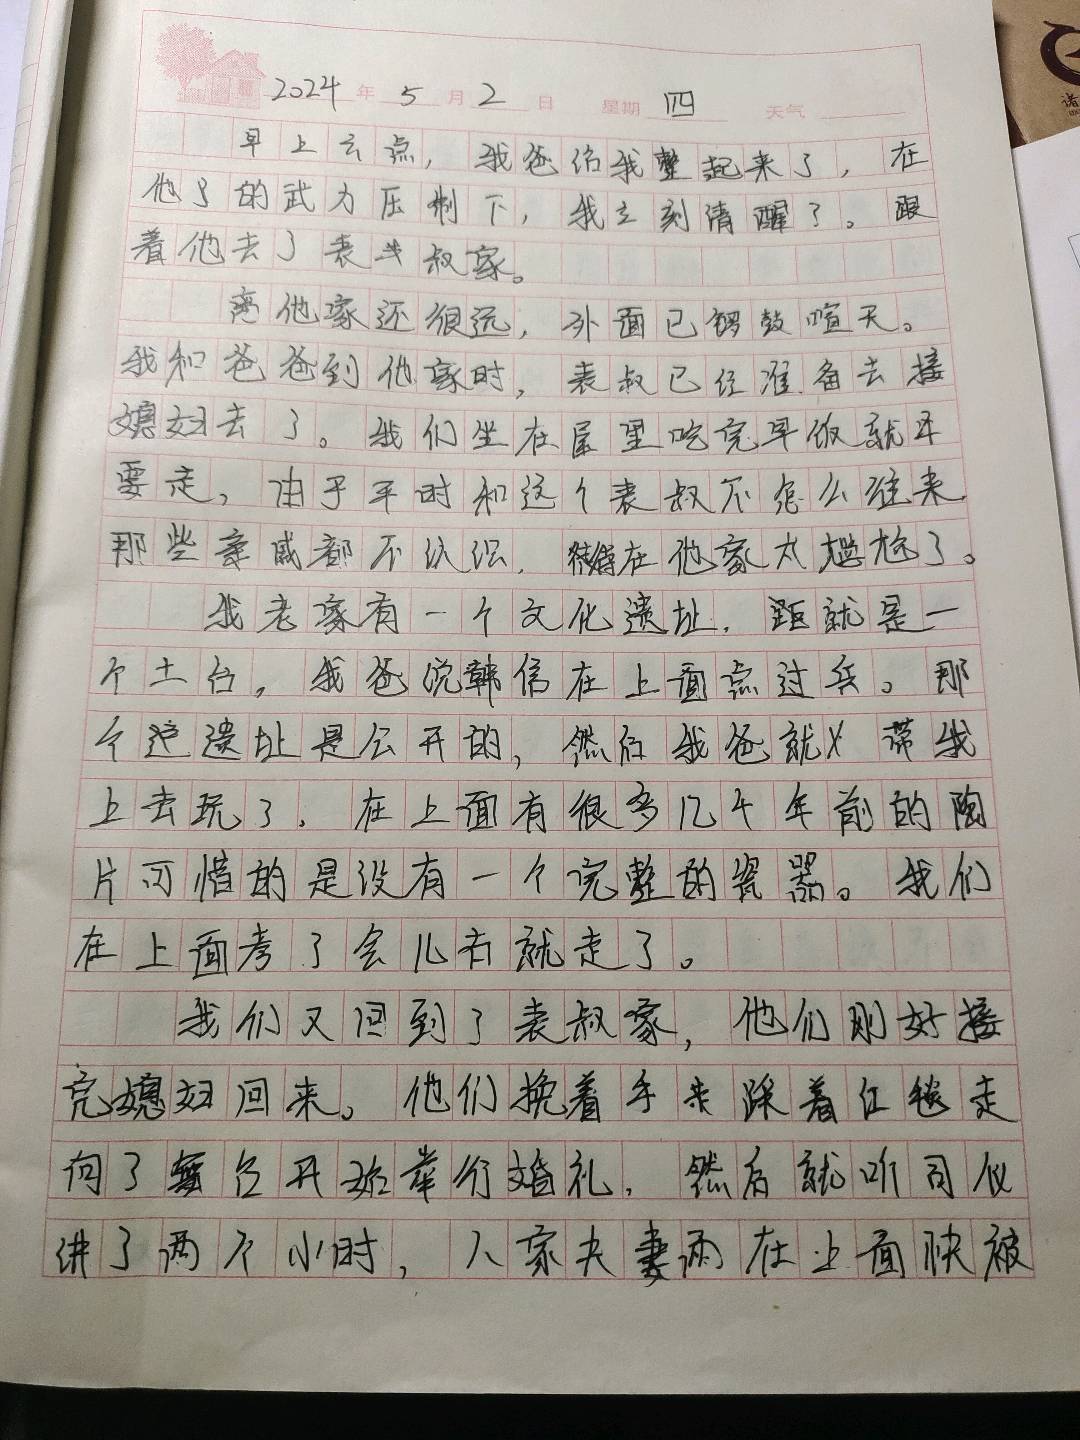 2024年5月2日 星期四 天气
早上六点，我爸给我整起来了，在
他的武力压制下，我立刻清醒了。跟
着他去了表叔家。
离他家还很远，外面已锣鼓喧天。
我和爸爸到他家时，表叔已经准备去接
媳妇去了。我们坐在屋里吃完早饭就
要走，由于平时和这个表叔不怎么往来
那些亲戚都不认识，待在他家太尴尬了。
我老家有一个文化遗址，就是一
个土台，我爸说韩信在上面点过兵。那
个遗址是公开的，然后我爸就带我
上去玩了，在上面有很多几千年前的陶
片可惜的是没有一个完整的瓷器。我们
在上面考了会儿古就走了。
我们又回到了表叔家，他们刚好接
完媳妇回来。他们挽着手踩着红毯走
向了舞台开始举行婚礼，然后就听司仪
讲了两个小时，人家夫妻两在上面快被